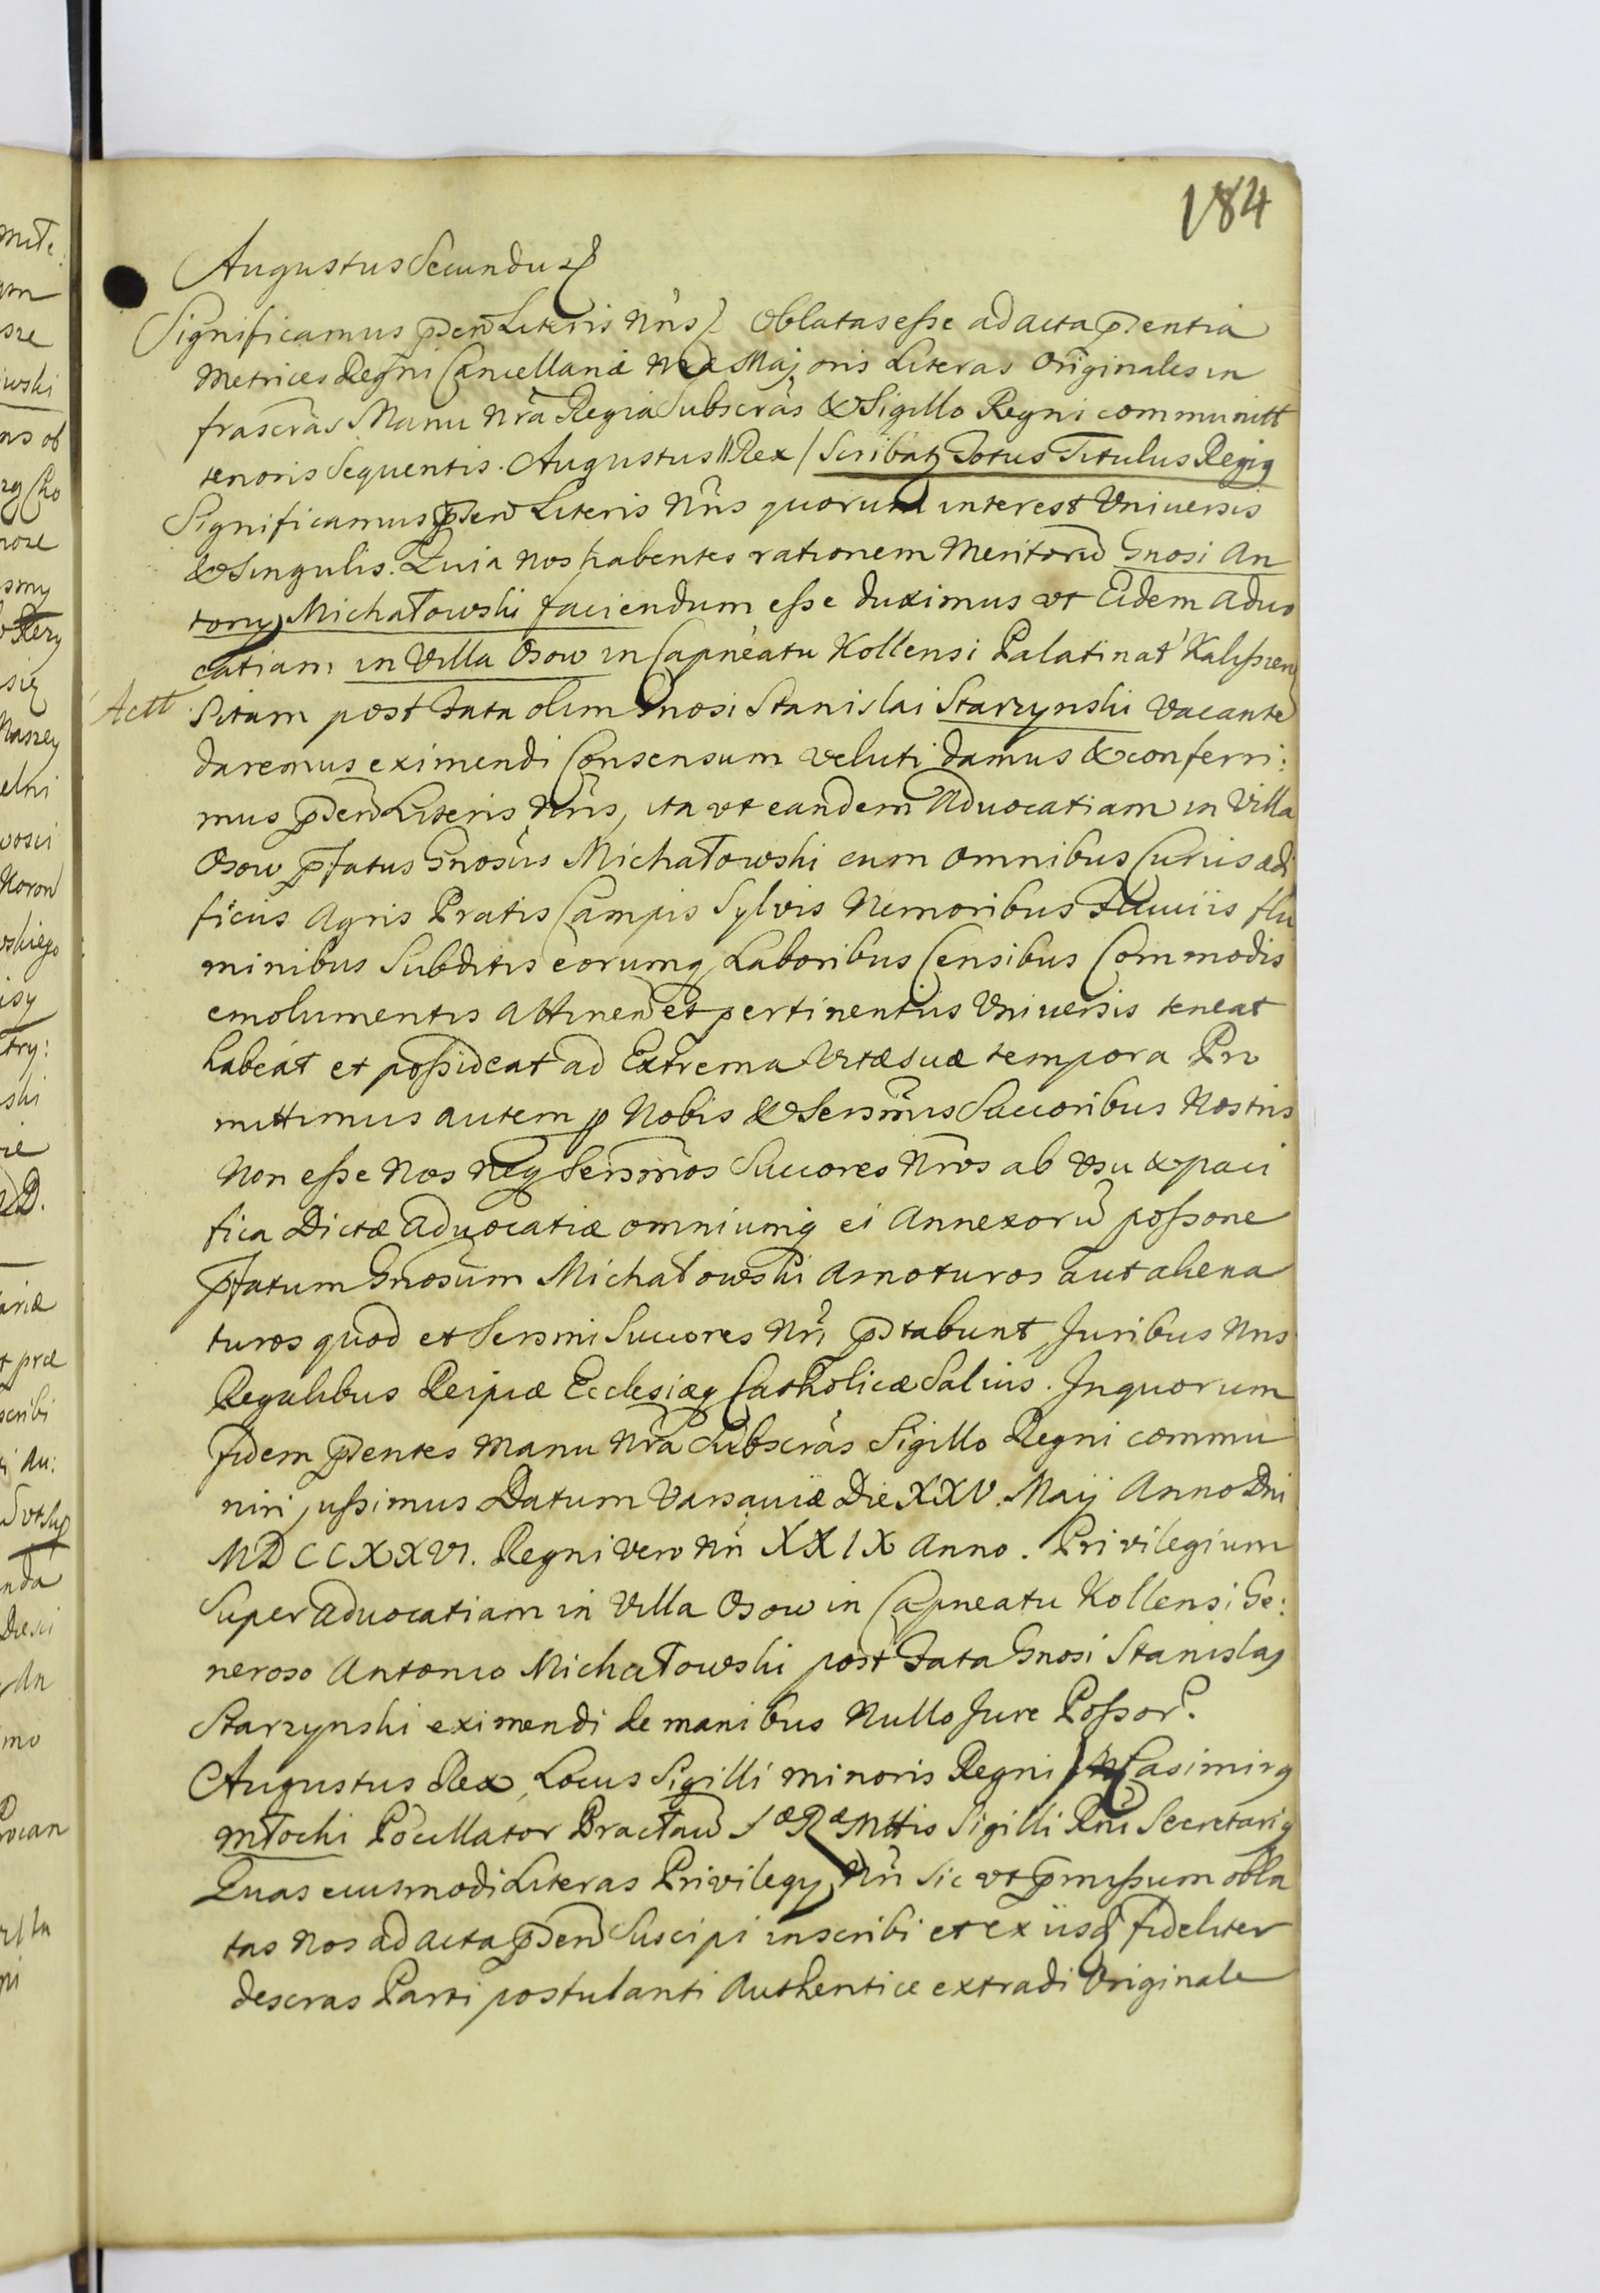 184
Augustus Secundus
Significamus pden Literis Nris Oblatas esse ad acta pdentia
Metrices Regni Cancellariæ Nræ Majoris Literas Originales in
frascras Manu Nra Regia Subscras & Sigillo Regni communitt
tenoris Sequentis. Augustus II Rex / Scribatq Totus Titulus Regiq
Significamus pden Literis Nris quorum interest Universis
& Singulis. Quia Nos habentes rationem Meritorū Gnosi An
tony Michałowski faciendum esse duximus vt Eidem advo
catiam in Villa Osow in Capneatu Kollensi Palatinat Kalissien
Actt
Sitam post Fata olim Gnosi Stanislai Starzynski Vacante
daremus eximendi Consensum veluti damus & conferri:
mus pden Literis Nris, ita vt eandem Advocatiam in Villa
Osow pfatus Gnosus Michałowski cum omnibus Curiis ædi
ficiis Agris Pratis Campis Sylvis Nemoribus Fluuiis flu
minibus Subditis eorumq Laboribus Censibus Commodis
emolumentis Attinen et pertinentiis Vniversis teneat
habeat et possideat ad Extrema Vitæ suæ tempora Pro
mittimus autem p Nobis & Sersmis Succoribus Nostris
Non esse Nos Neq Sersmos Succores Nros ab vsu & paci
fica Dictæ advocatiæ omniumq ei Annexorū possone
pfatum Gnosum Michałowski amoturos aut aliena
turos quod et Sersmi Succores Nri pstabunt, Juribus Nris
Regalibus Reipæ Ecclesiæq Catholicæ Salvis. In quorum
fidem pdentes Manu Nra Subscras Sigillo Regni commu
niri jussimus Datum Varsaviæ Die XXV. Maij Anno Dni
MDCCXXVI. Regni vero Nri XXIX Anno. Privilegium
Super advocatiam in Villa Osow in Capneatu Kollensi Ge:
neroso Antonio Michałowski post Fata Gnosi Stanislaj
Starzynski eximendi de manibus Nullo Jure Possor.
Augustus Rex, Locus Sigilli minoris Regni Casimirq
Młochi Pocillator Bracław Sæ Ræ Mttis Sigilli Rni Secretariq
Quas eiusmodi Literas Privilegy Nri Sic vt pmissum obla
tas Nos ad acta pden Suscipi inscribi et ex iisd fideliter
descras Parti postulanti Authentice extradi Originale